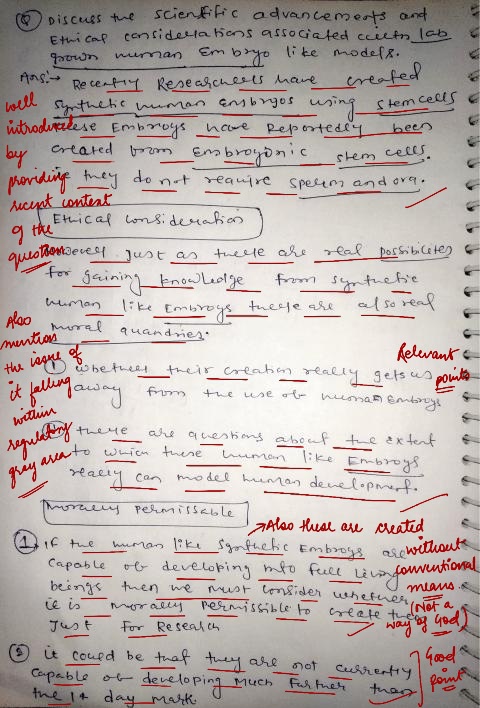 Q Discuss the scientific advancements and
Ethical considerations associated with lab
grown human Embryo like models.
Ans:→ Recently Researchers have created
Synthetic human Embryos using stem cells
these Embroys have Reportedly been
created from Embroyonic stem cells.
they do not require sperm and ova.
well
introduced
by
providing
recent context
of the
question
Ethical consideration
However just as there are real possibletes
for gaining knowledge from synthetic
human like Embroys there are also real
moral quandries.
Also
mention
the issue of
it falling
within
regulatory
gray area
① whether their creation really gets us
away from the use of human Embroys
Relevant
points
② there are questions about the extent
to which these human like Embroys
really can model human development.
Morally Permissable
→ Also these are created
without
conventional
means.
(Not a
way of God)
① If the human like Synthetic Embroys are
capable of developing into full living
beings then we must consider whether
it is morally Permissible to create them
Just for Research
② it could be that they are not currently
capable of developing much further than
the 14 day mark
Good
point